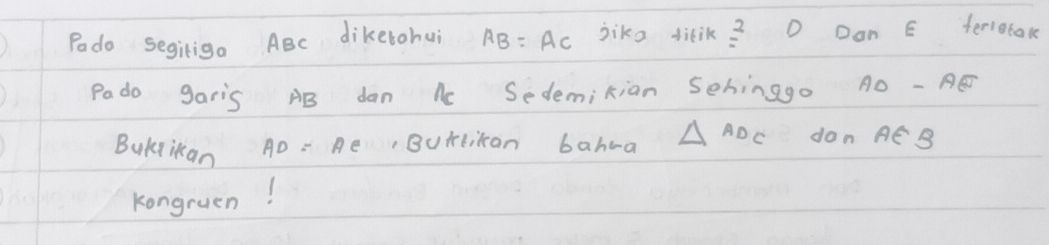 Pada segitiga ABC diketahui AB = AC jika titik = 2 D Dan E terletak
Pada garis AB dan AC Sedemikian Sehingga AD - AE
Buktikan AD = AE , Buktikan bahwa △ ADC dan AEB
kongruen !